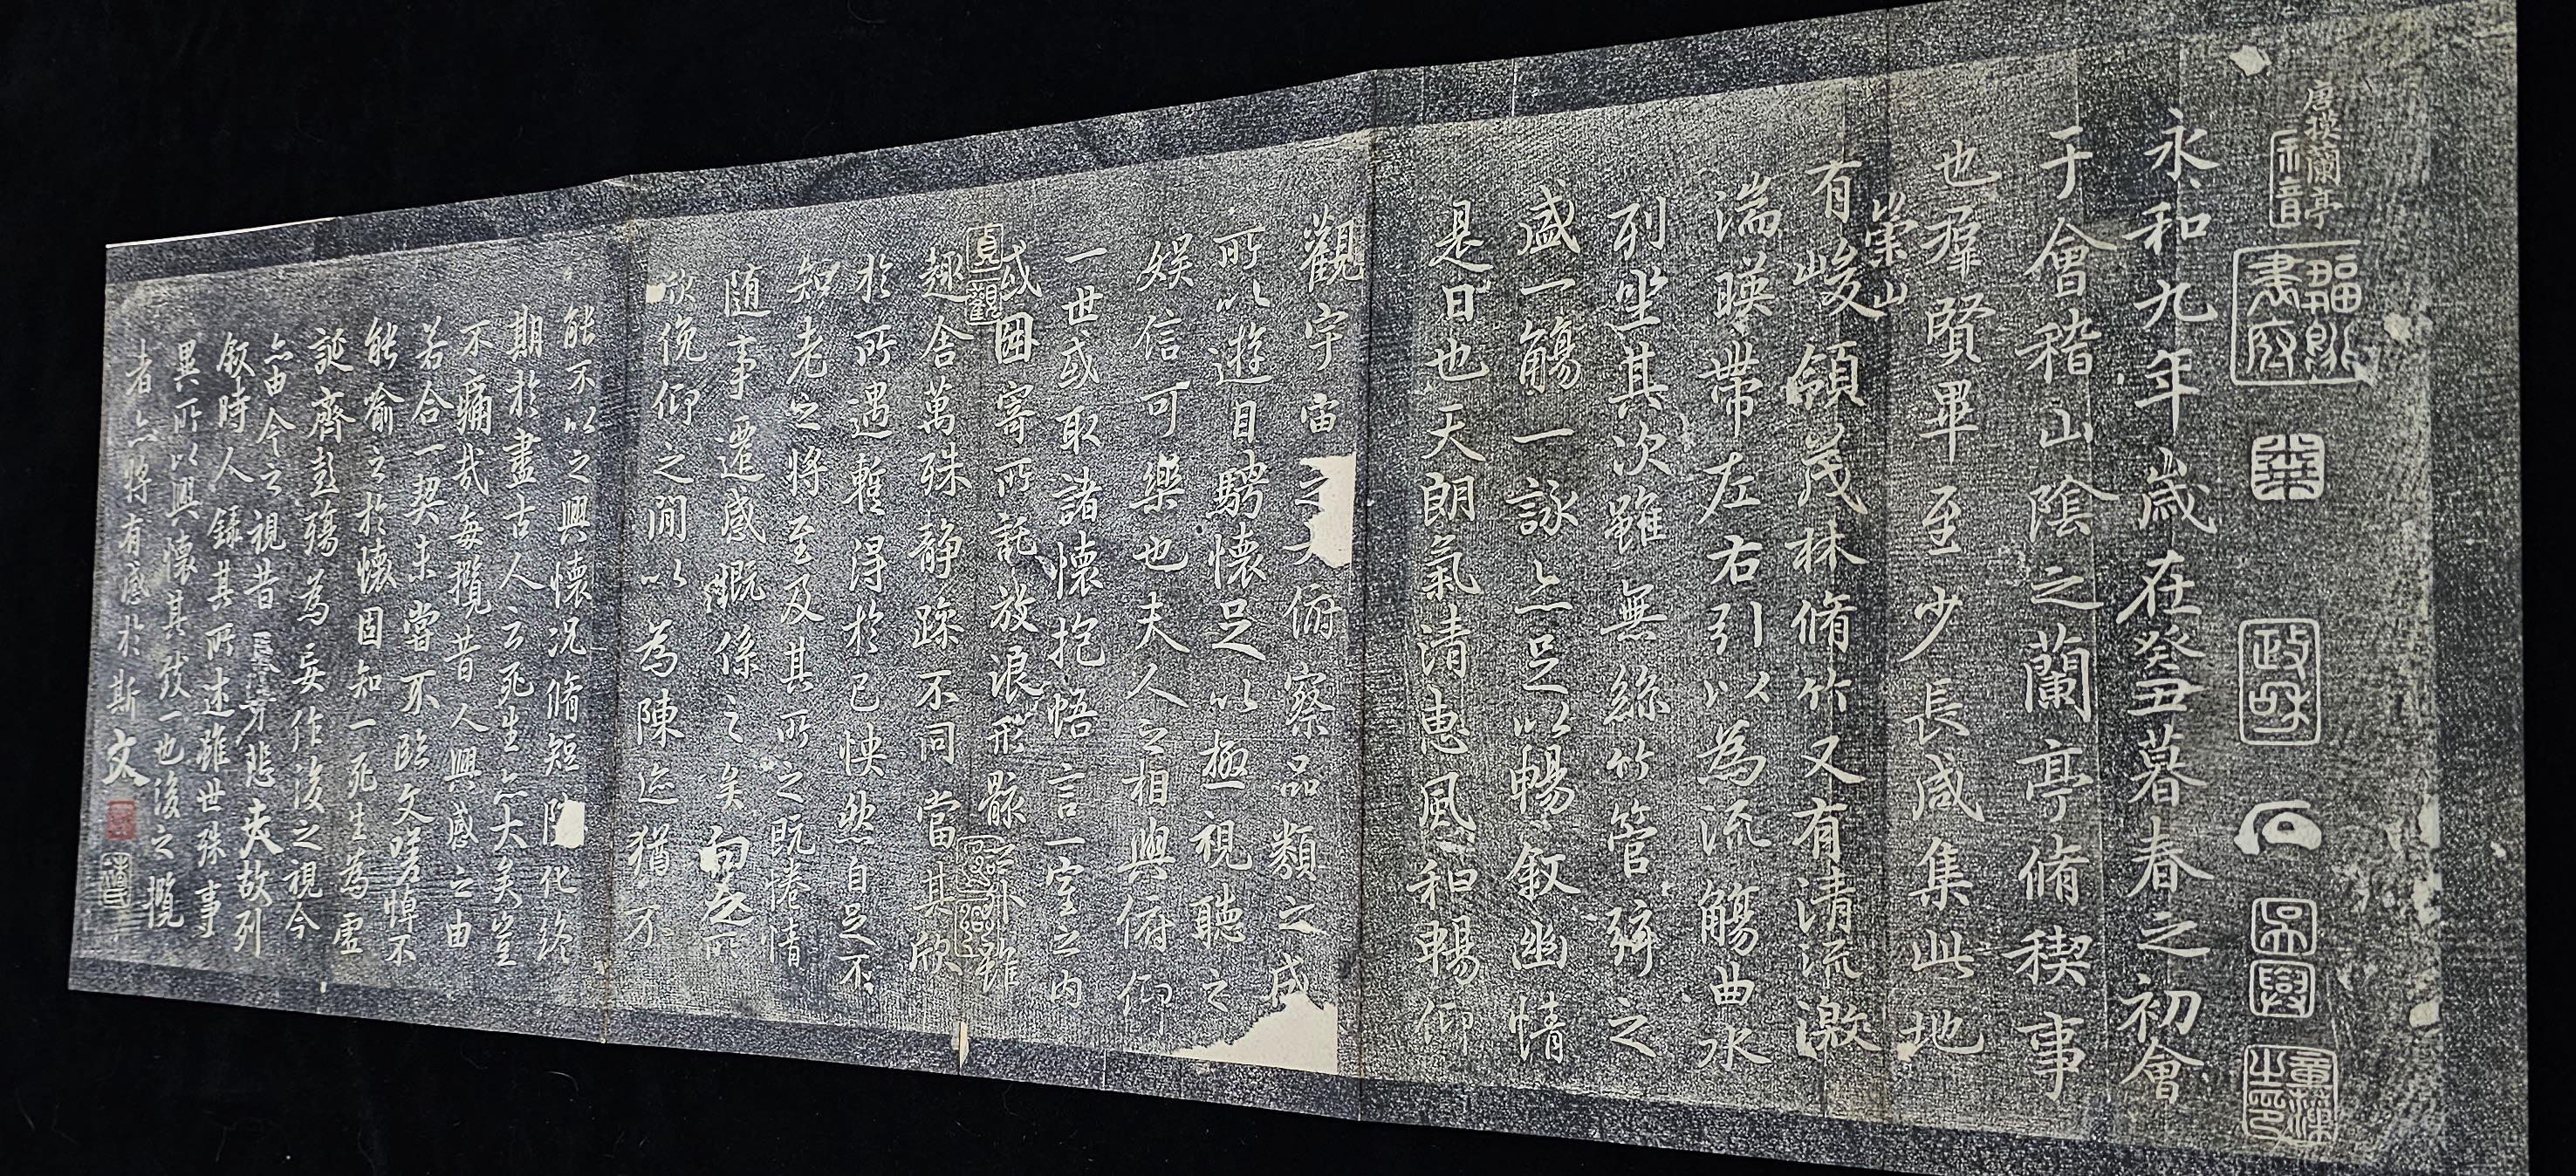 唐摸蘭亭
永和九年歲在癸丑暮春之初會
于會稽山陰之蘭亭脩稧事
也羣賢畢至少長咸集此地
崇山
有峻領茂林脩竹又有清流激
湍暎帶左右引以為流觴曲水
列坐其次雖無絲竹管弦之
盛一觴一詠亦足以暢叙幽情
是日也天朗氣清惠風和暢仰
觀宇宙之大俯察品類之盛
所以遊目騁懷足以極視聽之
娛信可樂也夫人之相與俯仰
一世或取諸懷抱悟言一室之内
或因寄所託放浪形骸之外雖
趣舍萬殊静躁不同當其欣
於所遇蹔得於己怏然自足不
知老之將至及其所之既惓情
随事遷感慨係之矣向之所
欣俛仰之閒以為陳迹猶不
能不以之興懷况脩短随化終
期於盡古人云死生亦大矣豈
不痛哉每攬昔人興感之由
若合一契未嘗不臨文嗟悼不
能喻之於懷固知一死生為虛
誕齊彭殤為妄作後之視今
亦由今之視昔悲夫故列
叙時人録其所述雖世殊事
異所以興懷其致一也後之攬
者亦將有感於斯文
貞觀